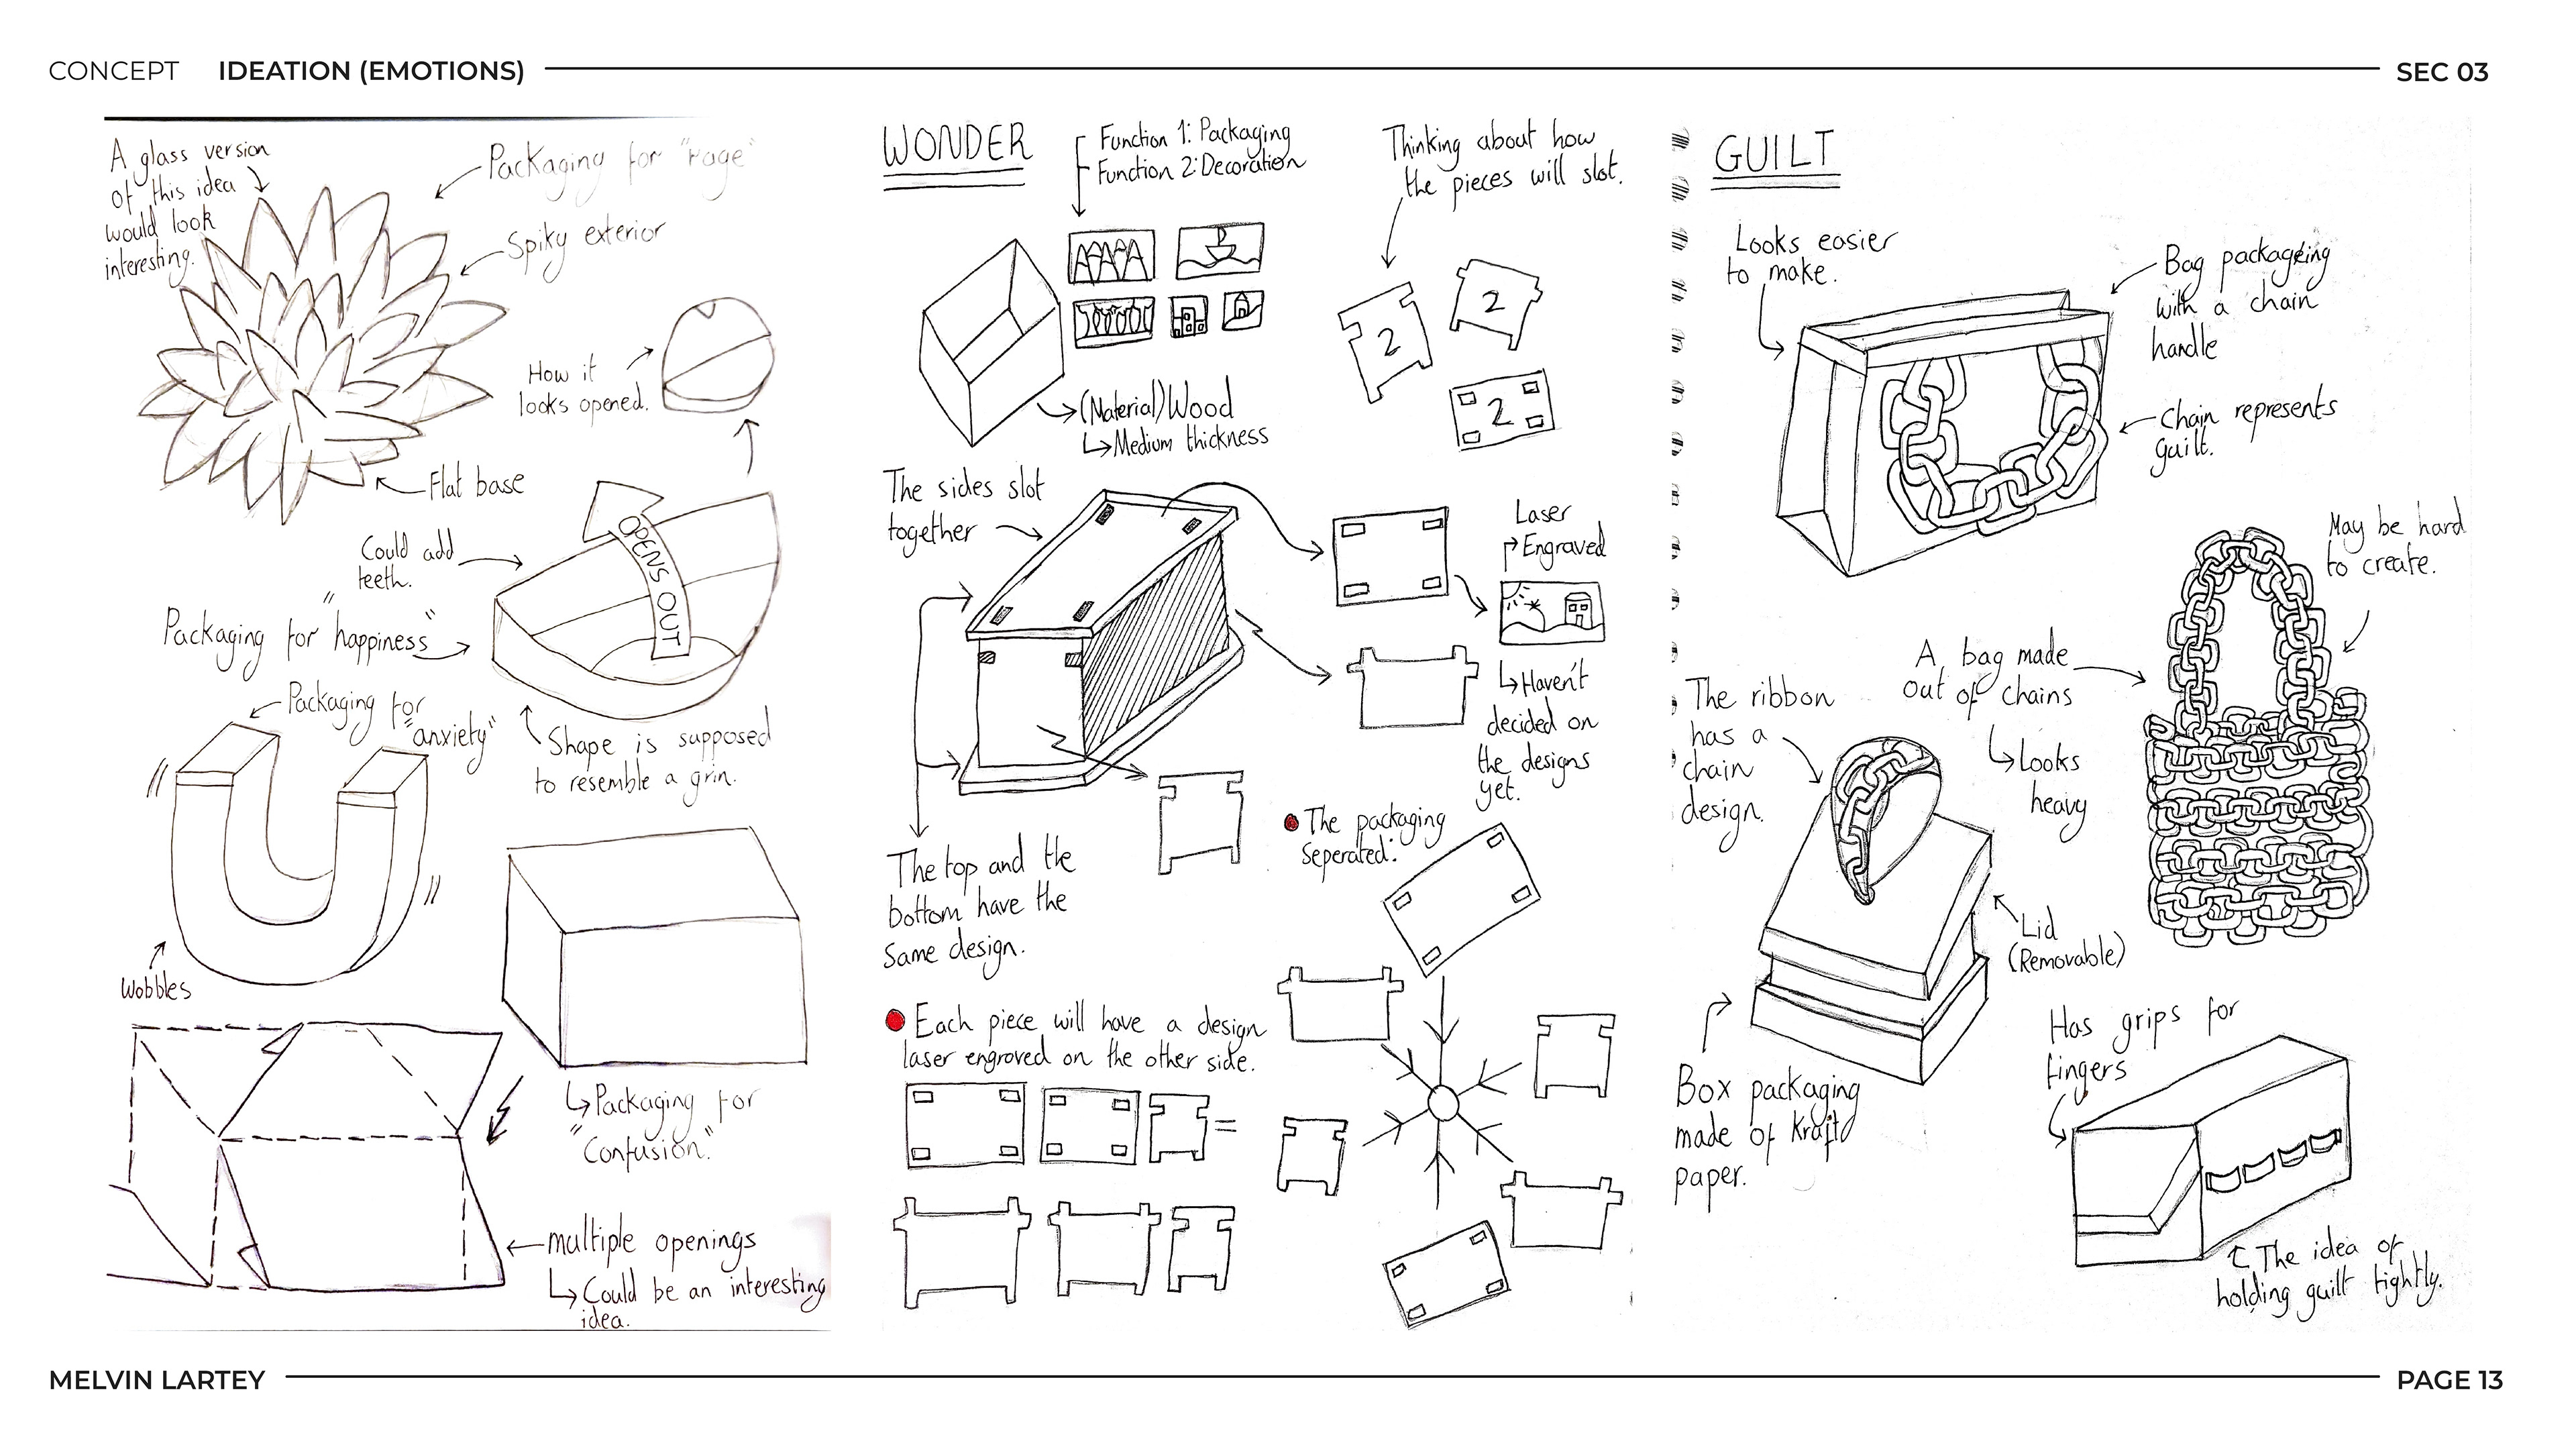 CONCEPT IDEATION (EMOTIONS)
SEC 03
A glass version
of this idea
would look
interesting.
Packaging for "rage"
Spiky exterior
How it
looks opened.
Flat base
Could add
teeth.
OPENS OUT
Packaging for "happiness"
Packaging for
"anxiety"
Shape is supposed
to resemble a grin.
Wobbles
Packaging for
"Confusion."
multiple openings
Could be an interesting
idea.
WONDER
Function 1: Packaging
Function 2: Decoration
Thinking about how
the pieces will slot.
2
2
2
(Material) Wood
Medium thickness
The sides slot
together
Laser
Engraved
Haven't
decided on
the designs
yet.
The top and the
bottom have the
same design.
The packaging
seperated:
Each piece will have a design
laser engraved on the other side.
=
GUILT
Looks easier
to make.
Bag packageing
with a chain
handle
Chain represents
guilt.
May be hard
to create.
A bag made
out of chains
Looks
heavy
The ribbon
has a
chain
design.
Lid
(Removable)
Box packaging
made of Kraft
paper.
Has grips for
fingers
The idea of
holding guilt tightly.
MELVIN LARTEY
PAGE 13